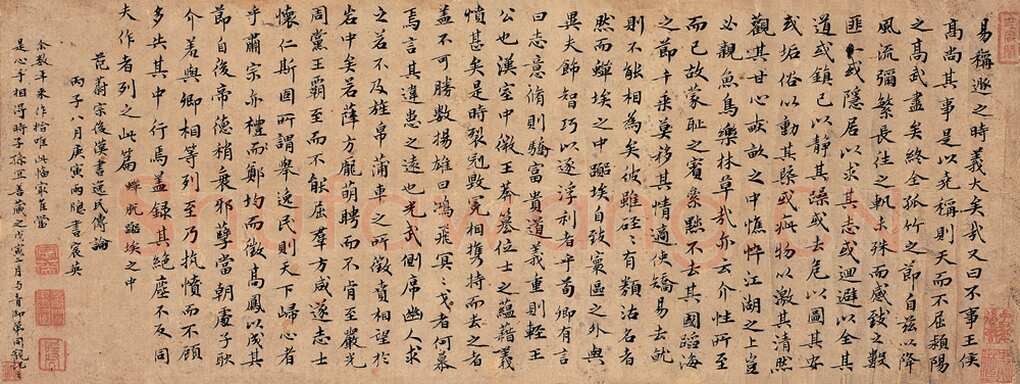 易稱遯之時義大矣哉又曰不事王侯
高尚其事是以堯稱則天而不屈潁陽
之高武盡矣終全孤竹之節自茲以降
風流彌繁長往之軌未殊而感致之數
匪一或隱居以求其志或迴避以全其
道或鎮己以靜其躁或去危以圖其安
或垢俗以動其槩或疵物以激其清然
觀其甘心畎畝之中憔悴江湖之上豈
必親魚鳥樂林草哉亦云介性所至
而已故蒙恥之賓屢黜不去其國蹈海
之節千乘莫移其情適使矯易去就
則不能相為矣彼雖硜硜有類沽名者
然而蟬埃之中囂埃自致寰區之外與
異夫飾智巧以逐浮利者乎荀卿有言
曰志意脩則驕富貴道義重則輕王
公也漢室中微王莽篡位士之蘊藉義
憤甚矣是時裂冠毀冕相攜持而去之者
蓋不可勝數揚雄曰鴻飛冥冥弋者何篡
焉言其違患之遠也光武側席幽人求
之若不及旌帛蒲車之所徵賁相望於
岩中矣若薛方龐萌聘而不肯至嚴光
周黨王霸至而不能屈羣方咸遂志士
懷仁斯固所謂舉逸民則天下歸心者
乎肅宗亦禮而鄭均而徵高鳳以成其
節自後帝德稍衰邪孽當朝處子耿
介羞與卿相等列至乃抗憤而不顧
多失其中行焉蓋録其絕塵不及同
夫作者列之此篇 蟬蛻囂埃之中
范蔚宗後漢書逸民傳論
丙子八月庚寅雨牕書宸英
余數年來作楷唯此臨家當
是心手相得時子孫宜善藏之